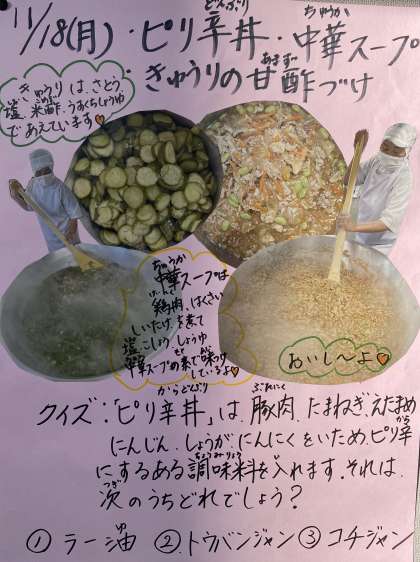 11/18(月)・ピリ辛丼・中華スープ
・きゅうりの甘酢づけ
きゅうりは、さとう、
塩、米酢、うすくちしょうゆ
であえています
中華スープは
鶏肉、はくさい
しいたけを煮て
塩、こしょう、しょうゆ
中華スープの素で味つけ
しているよ
おいし〜よ
クイズ:「ピリ辛丼」は、豚肉、たまねぎ、えだまめ
にんじん、しょうが、にんにくをいため、ピリ辛
にするある調味料を入れます。それは、
次のうちどれでしょう?
① ラー油 ②.トウバンジャン ③ コチジャン